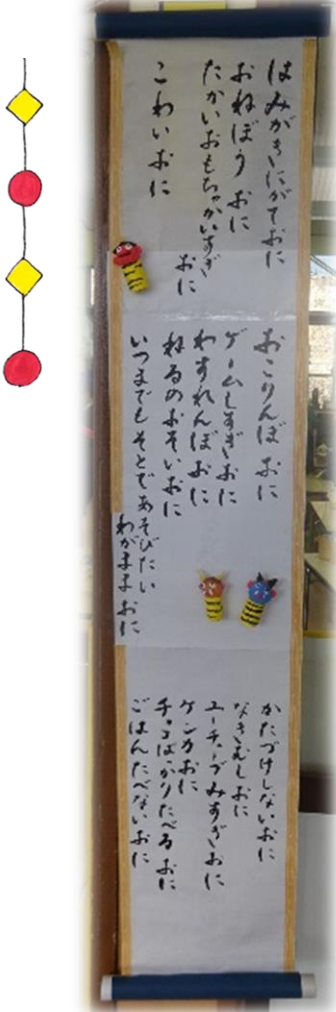 はみがきにがておに
おねぼう おに
たかいおもちゃかいすぎ
おに
こわい おに
おこりんぼ おに
ゲームしすぎおに
わすれんぼおに
ねるのおそいおに
いつまでもそとであそびたい
わがまま おに
かたづけしないおに
なきむしおに
ユーチューブみすぎおに
ケンカおに
チョコばかりたべる おに
ごはんたべないおに